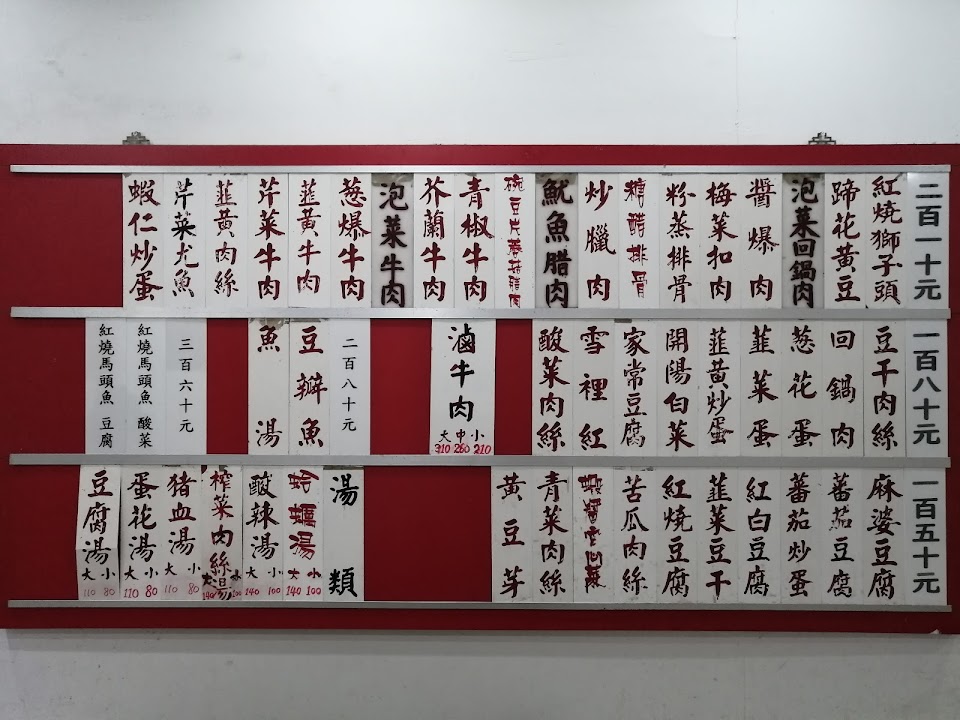 二百一十元
紅燒獅子頭
蹄花黃豆
泡菜回鍋肉
醬爆肉
梅菜扣肉
粉蒸排骨
糖醋排骨
炒臘肉
魷魚腊肉
豌豆片蘑菇腊肉
青椒牛肉
芥蘭牛肉
泡菜牛肉
葱爆牛肉
韮黃牛肉
芹菜牛肉
韮黃肉絲
芹菜尤魚
蝦仁炒蛋
一百八十元
豆干肉絲
回鍋肉
葱花蛋
韮菜蛋
韮黃炒蛋
開陽白菜
家常豆腐
雪裡紅
酸菜肉絲
滷牛肉
大 中 小
310 260 210
二百八十元
豆瓣魚
魚湯
三百六十元
紅燒馬頭魚 酸菜
紅燒馬頭魚 豆腐
一百五十元
麻婆豆腐
蕃茄豆腐
蕃茄炒蛋
紅白豆腐
韮菜豆干
紅燒豆腐
苦瓜肉絲
青菜肉絲
黃豆芽
湯類
蛤蠣湯
大 小
140 100
酸辣湯
大 小
140 100
榨菜肉絲湯
大 小
140 100
豬血湯
大 小
110 80
蛋花湯
大 小
110 80
豆腐湯
大 小
110 80